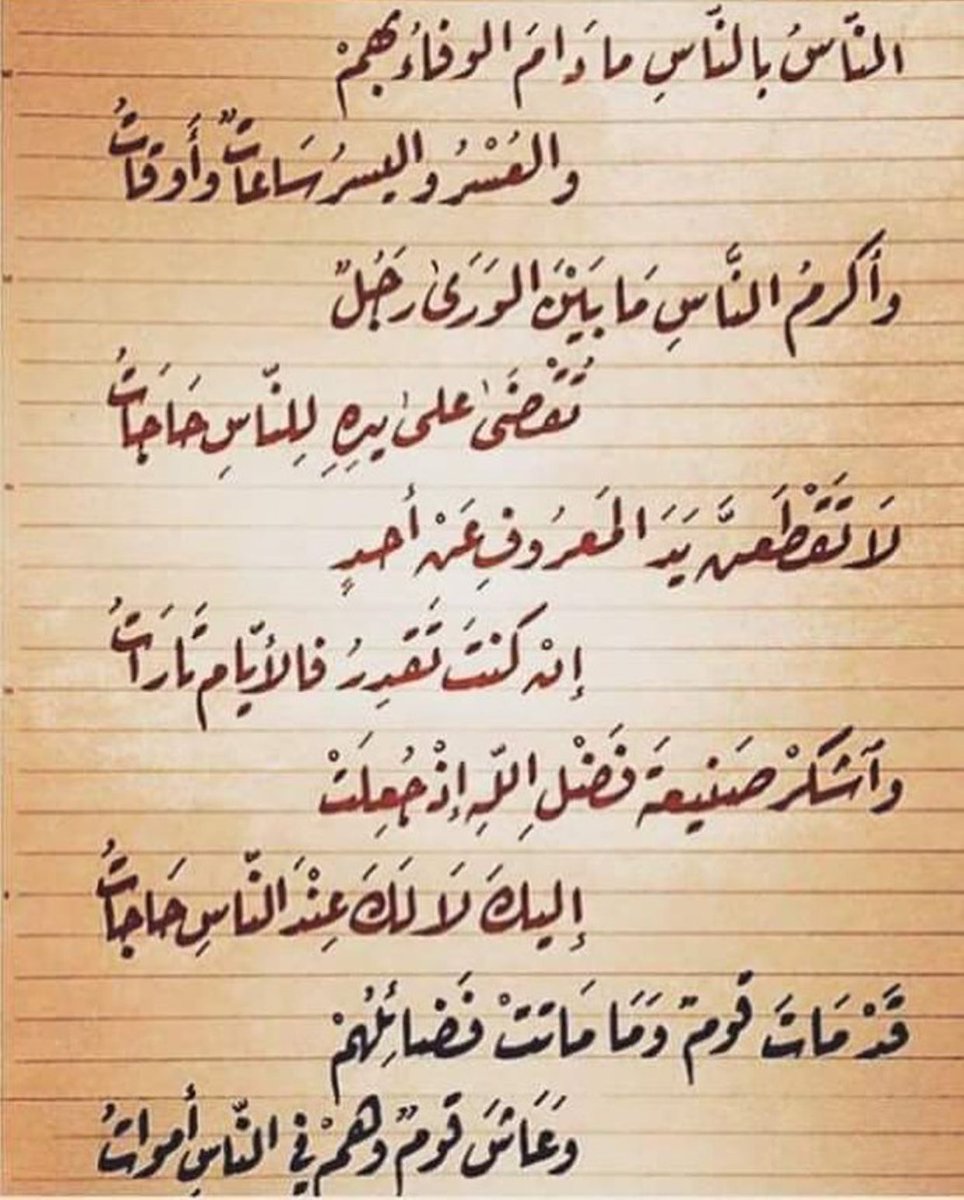 النّاسُ بالنّاسِ ما دَامَ الوفاءُ بهِمْ
والعُسْرُ واليسرُ سَاعاتٌ وأَوقاتُ
وأكرمُ النَّاسِ مَا بَيْنَ الوَرَىٰ رَجُلٌ
تُقْضَىٰ علىٰ يدِهِ لِلنّاسِ حَاجَاتُ
لَا تَقْطَعنَّ يَدَ المَعرُوفِ عَنْ أحدٍ
إنْ كنتَ تَقدِرُ فالأيّام تَارَاتُ
وٱشكرْ صَنيعةَ فَضْلِ اللّهِ إذْ جُعِلَتْ
إليكَ لَا لَكَ عِنْدَ النّاسِ حَاجاتُ
قَدْ مَاتَ قومٌ وَمَا مَاتتْ فَضَائِلُهُمْ
وَعَاشَ قومٌ وهمْ في النّاسِ أمواتُ